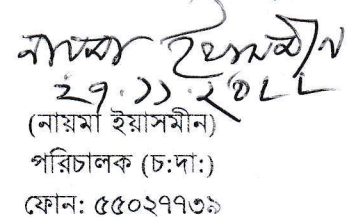 নায়মা ইয়াসমীন
২৭.১১.২০২২
(নায়মা ইয়াসমীন)
পরিচালক (চ:দা:)
ফোন: ৫৫০২৭৭৩৯